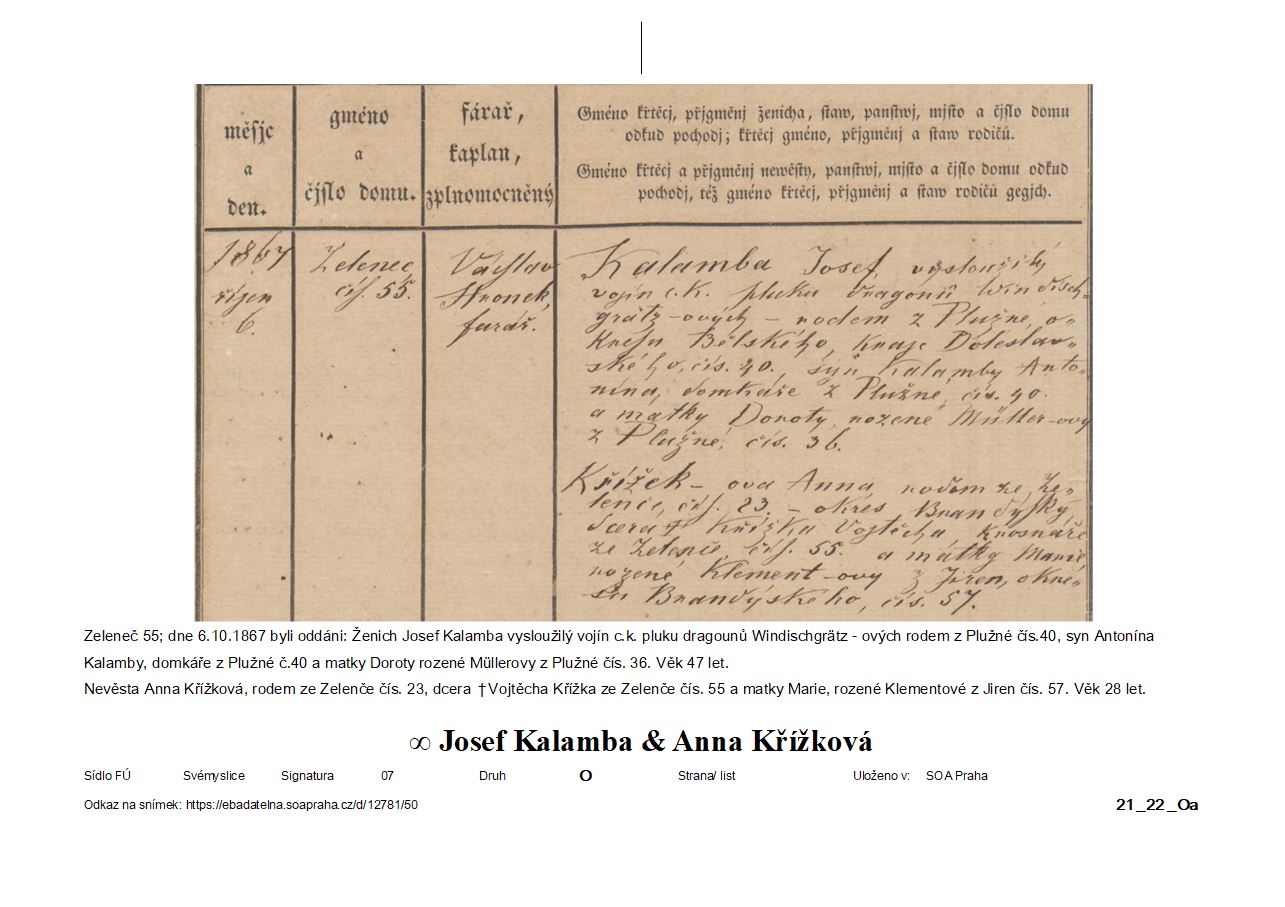 měsjc
a
den.
gméno
a
čjslo domu.
fárař,
kaplan,
zplnomocněný
Gméno křtěcj, přjgměnj ženicha, staw, panstwj, mjsto a čjslo domu
odkud pochodj; křtěcj gméno, přjgměnj a staw rodičů.
Gméno křtěcj a přjgměnj newěsty, panstwj, mjsto a čjslo domu odkud
pochodj, též gméno křtěcj, přjgměnj a staw rodičů gegjch.
1867
říjen
6.
Zelenec
čís. 55.
Václav
Hronek,
farář.
Kalamba Josef, vysloužilý
vojín c.k. pluku dragonů Windisch-
grätz-ových – rodem z Plužné, o-
kresu Bělského, kraje Boleslav-
ského, čís. 40., syn Kalamby Anto-
nína, domkáře z Plužné, čís. 40.
a matky Doroty, rozené Müller-ovy
z Plužné, čís. 36.
Křížek-ova Anna, rodem ze Ze-
lenče, čís. 23. – okres Brandýský,
dcera † Křížka Vojtěcha, krosnáře
ze Zelenče, čís. 55. a matky Marie,
rozené Klement-ovy z Jiren, okre-
su Brandýského, čís. 57.
Zeleneč 55; dne 6.10.1867 byli oddáni: Ženich Josef Kalamba vysloužilý vojín c.k. pluku dragounů Windischgrätz - ových rodem z Plužné čís.40, syn Antonína
Kalamby, domkáře z Plužné č.40 a matky Doroty rozené Müllerovy z Plužné čís. 36. Věk 47 let.
Nevěsta Anna Křížková, rodem ze Zelenče čís. 23, dcera †Vojtěcha Křížka ze Zelenče čís. 55 a matky Marie, rozené Klementové z Jiren čís. 57. Věk 28 let.
∞ Josef Kalamba & Anna Křížková
Sídlo FÚ Svémyslice Signatura 07 Druh O Strana/ list Uloženo v: SOA Praha
Odkaz na snímek: https://ebadatelna.soapraha.cz/d/12781/50
21_22_Oa